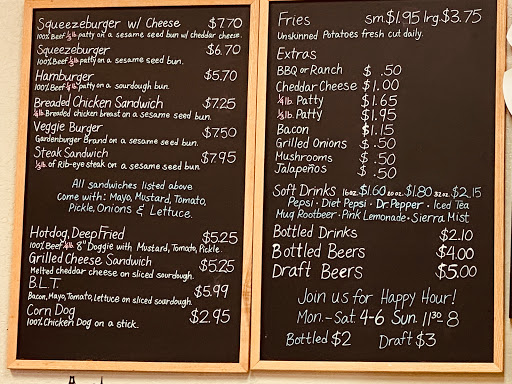 Squeezeburger w/ Cheese $7.70
100% Beef 1/3 lb patty on a sesame seed bun w/ cheddar cheese.
Squeezeburger $6.70
100% Beef 1/3 lb patty on a sesame seed bun.
Hamburger $5.70
100% Beef 1/4 lb patty on a sourdough bun.
Breaded Chicken Sandwich $7.25
1/4 lb Breaded chicken breast on a sesame seed bun.
Veggie Burger $7.50
Gardenburger Brand on a sesame seed bun.
Steak Sandwich $7.95
1/3 lb. of Rib-eye steak on a sesame seed bun
All sandwiches listed above
come with: Mayo, Mustard, Tomato,
Pickle, Onions & Lettuce.
Hotdog, Deep Fried $5.25
100% Beef 1/4 lb 8" Doggie with Mustard, Tomato, Pickle.
Grilled Cheese Sandwich $5.25
Melted cheddar cheese on sliced sourdough.
B.L.T. $5.99
Bacon, Mayo, Tomato, Lettuce on sliced sourdough.
Corn Dog $2.95
100% Chicken Dog on a stick.
Fries sm. $1.95 lrg. $3.75
Unskinned Potatoes fresh cut daily.
Extras
BBQ or Ranch $ .50
Cheddar Cheese $1.00
1/4 lb. Patty $1.65
1/3 lb. Patty $1.95
Bacon $1.15
Grilled Onions $ .50
Mushrooms $ .50
Jalapeños $ .50
Soft Drinks 16oz. $1.60 20 oz. $1.80 32 oz. $2.15
Pepsi · Diet Pepsi · Dr. Pepper · Iced Tea
Mug Rootbeer · Pink Lemonade · Sierra Mist
Bottled Drinks $2.10
Bottled Beers $4.00
Draft Beers $5.00
Join us for Happy Hour!
Mon.-Sat. 4-6 Sun. 11:30-8
Bottled $2 Draft $3